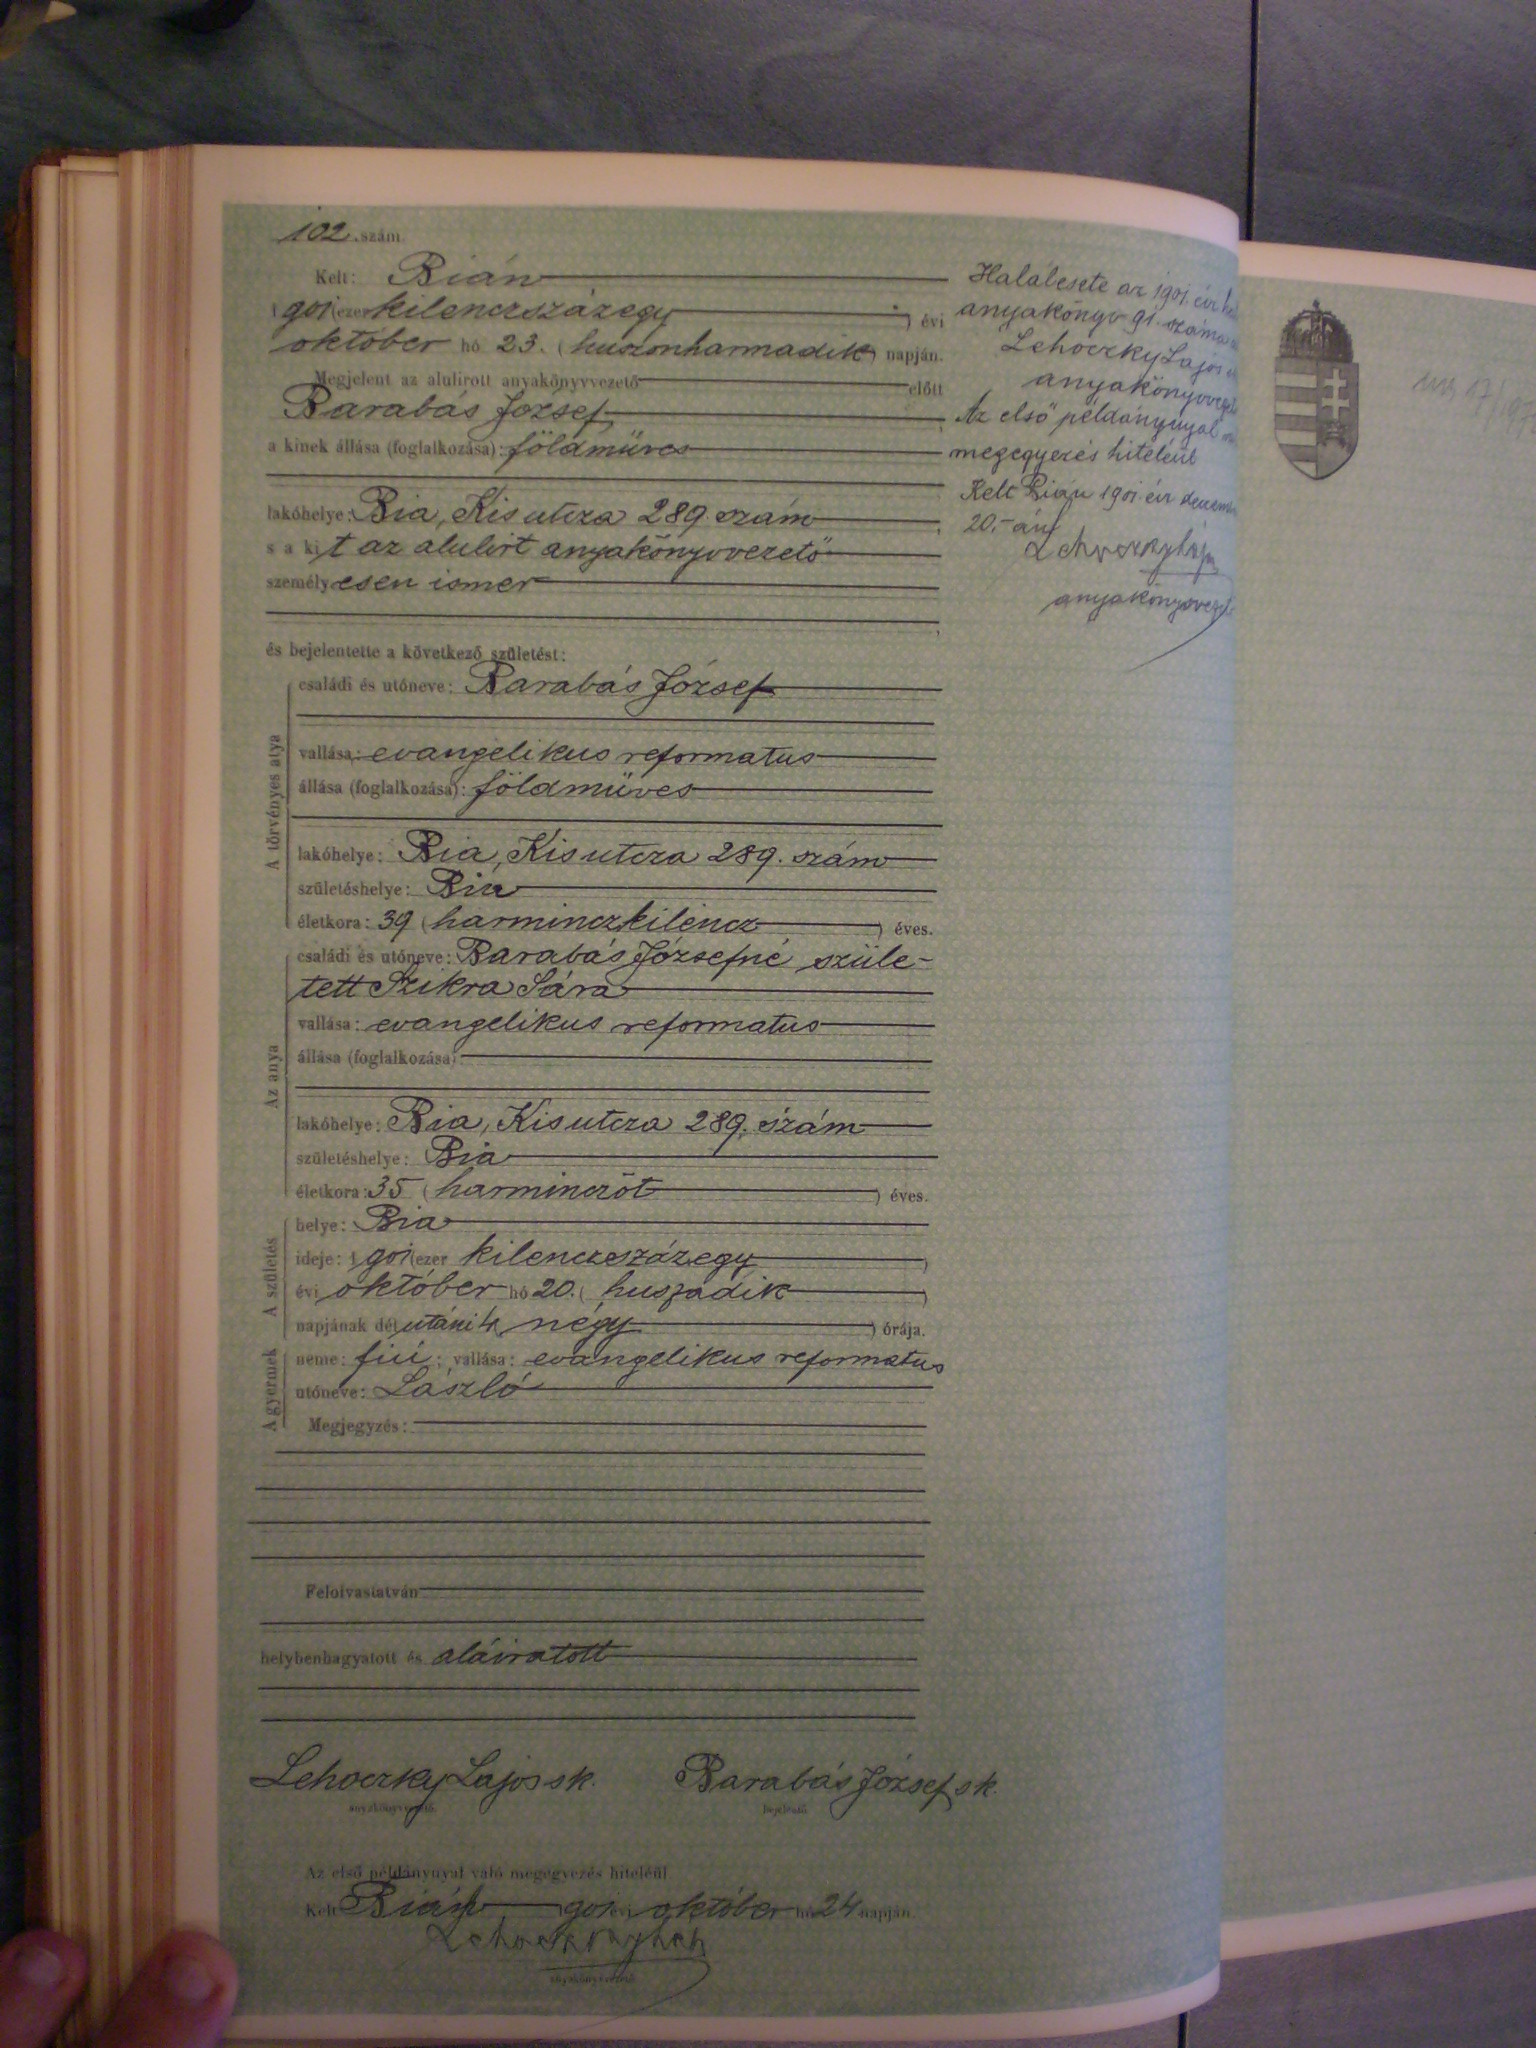 102. szám
Kelt: Bián
1901 (ezer kilenczszázegy) évi
október hó 23. (huszonharmadik) napján.
Megjelent az alulirott anyakönyvvezető előtt
Barabás József
a kinek állása (foglalkozása): földmüves
lakóhelye: Bia, Kis utcza 289. szám
s a kit az alulirt anyakönyvvezető
személyesen ismer
és bejelentette a következő születést:
A törvényes atya
családi és utóneve: Barabás József
vallása: evangelikus reformatus
állása (foglalkozása): földmüves
lakóhelye: Bia, Kis utcza 289. szám
születéshelye: Bia
életkora: 39 (harminczkilencz) éves.
Az anya
családi és utóneve: Barabás Józsefné szüle-
tett Szikra Sára
vallása: evangelikus reformatus
állása (foglalkozása)
lakóhelye: Bia, Kis utcza 289. szám
születéshelye: Bia
életkora: 35 (harminczöt) éves.
A születés
helye: Bia
ideje: 1901 (ezer kilenczszázegy)
évi október hó 20. (huszadik)
napjának délutáni 4 (négy) órája.
A gyermek
neme: fiú; vallása: evangelikus reformatus
utóneve: László
Megjegyzés:
Felolvastatván
helybenhagyatott és aláiratott
Lehoczky Lajos sk. Barabás József sk.
anyakönyvvezető. bejelentő
Az első példánnyal való megegyezés hiteléül
Kelt Bián 1901 évi október hó 24 napján.
Lehoczky Lajos
anyakönyvvezető
Halálesete az 1901. évi
anyakönyv 91. száma
Lehoczky Lajos
anyakönyvvezető
Az első példánnyal
megegyezés hiteléül
Kelt Bián 1901. évi
20.-án
Lehoczky Lajos
anyakönyvvezető